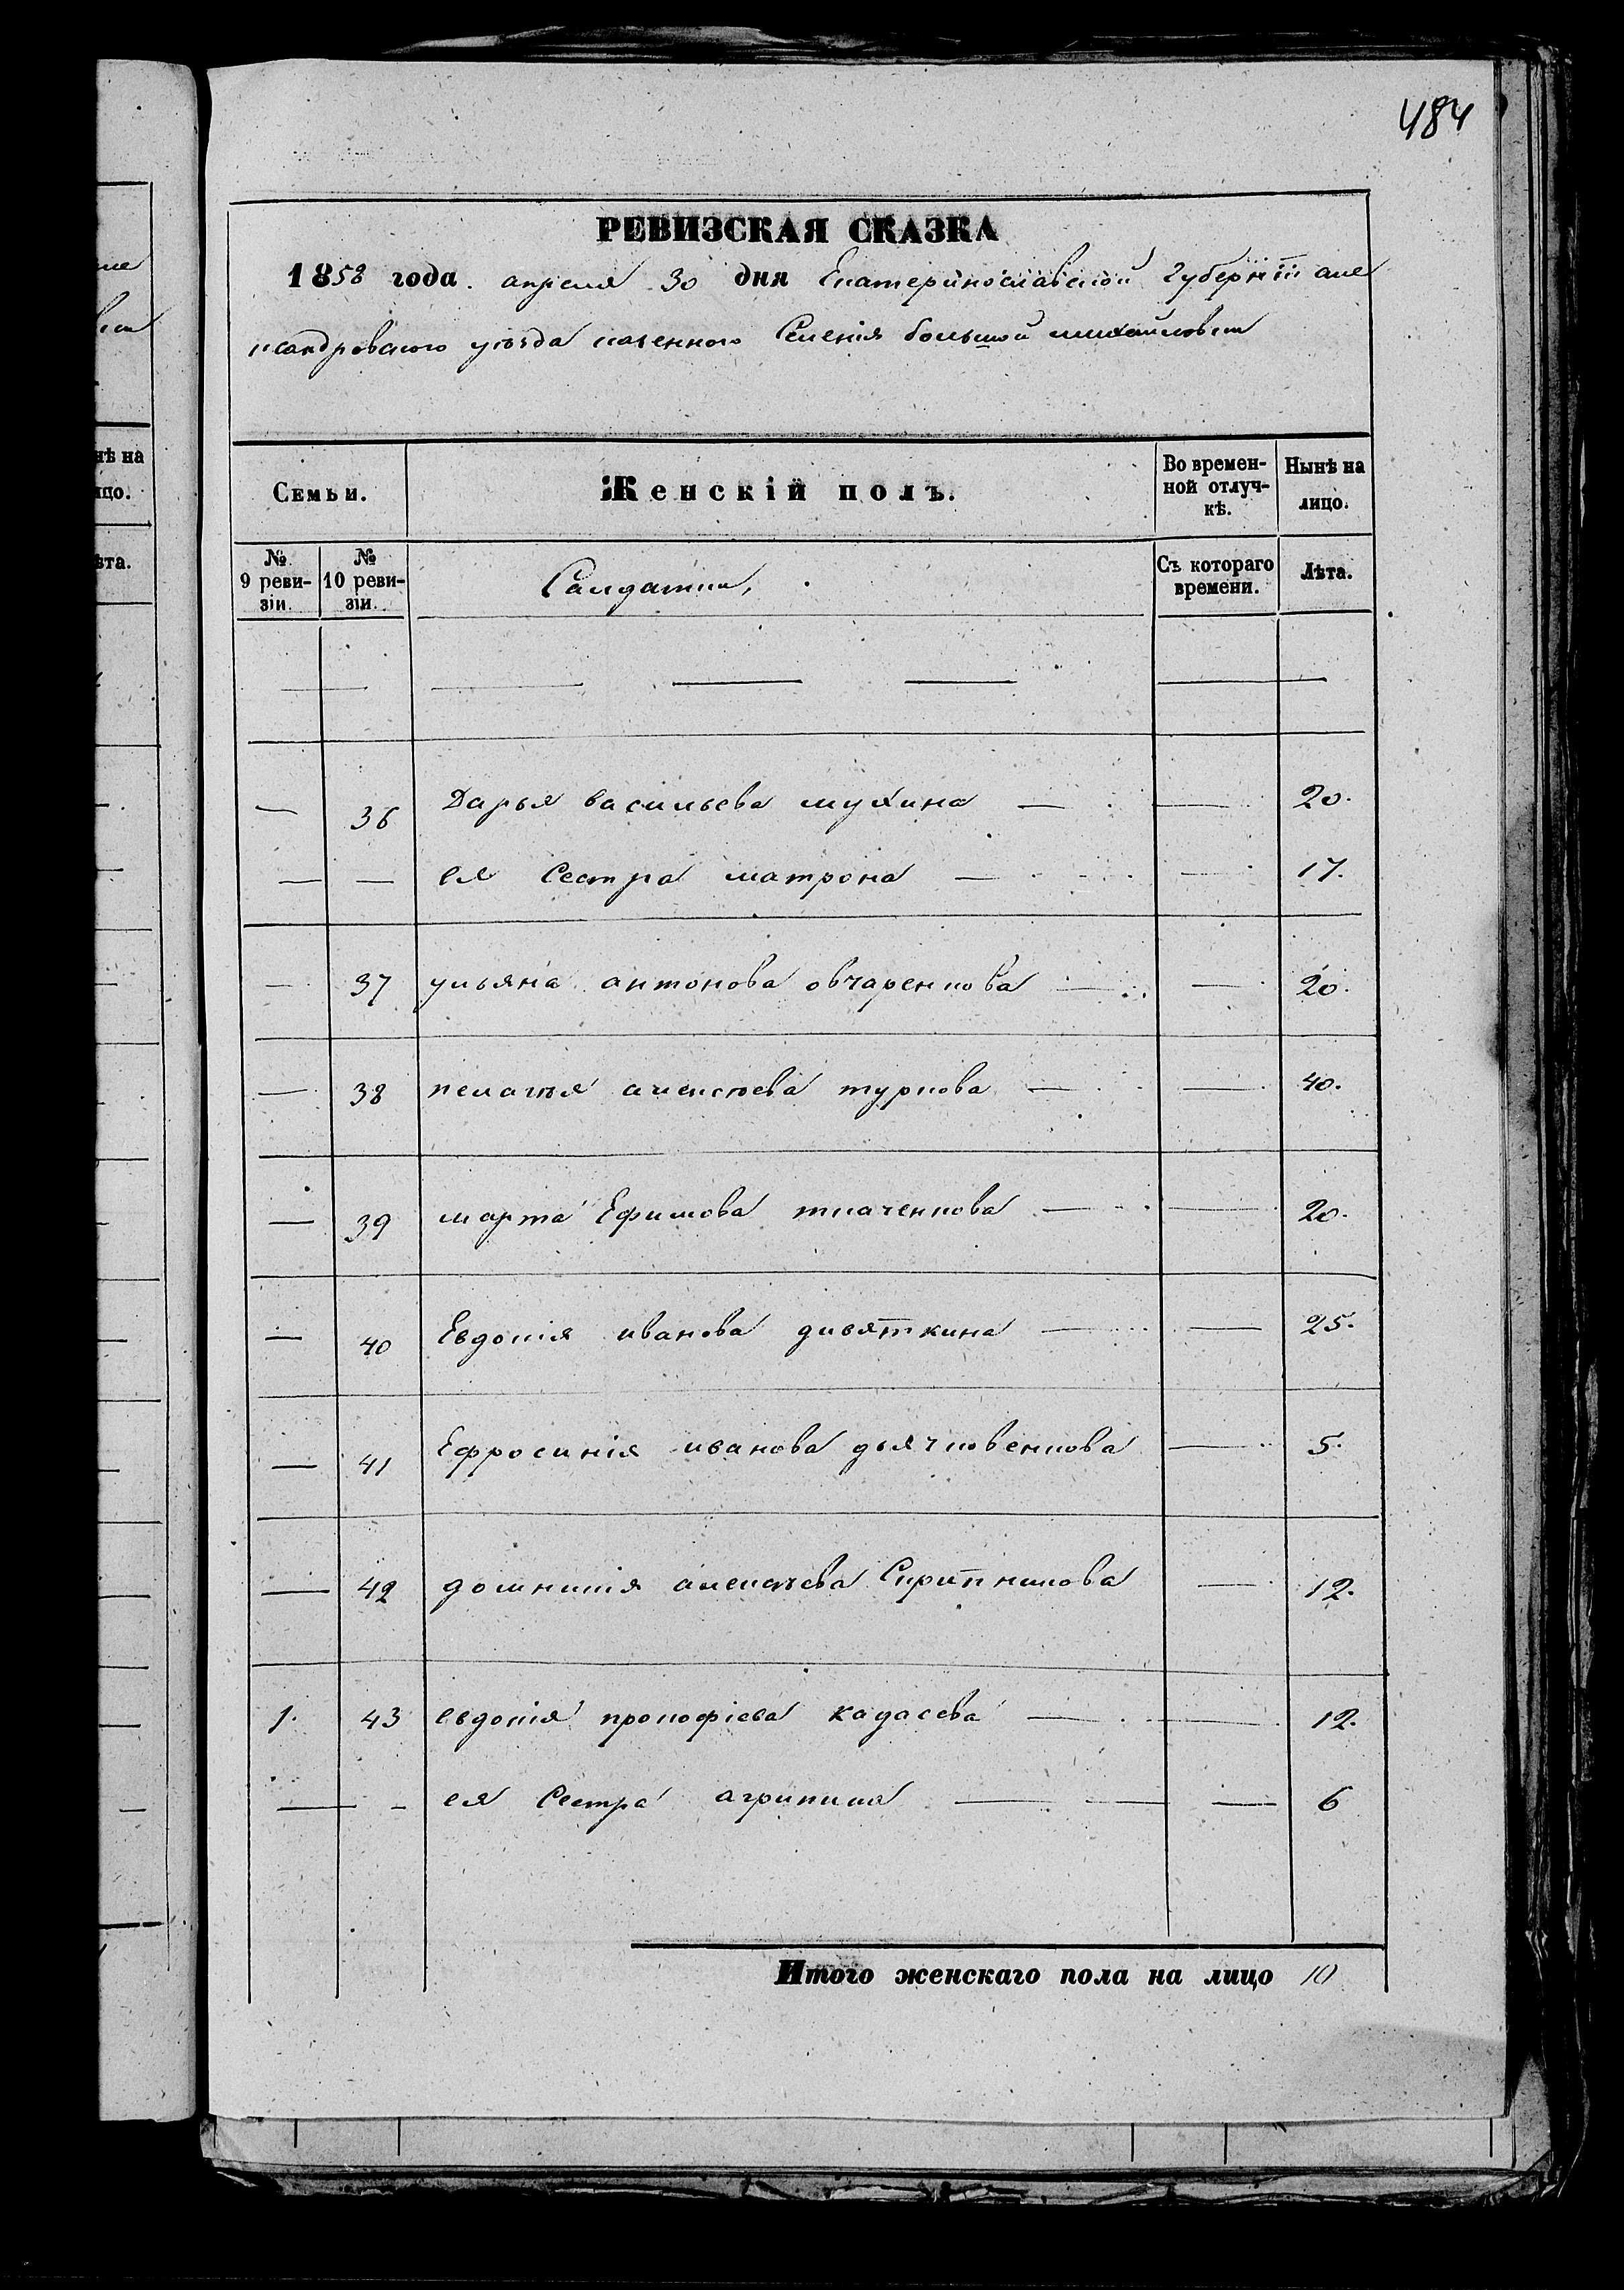 484
РЕВИЗСКАЯ СКАЗКА
1858 года. апреля 30 дня Екатеринославской Губерніи але
ксандровского уѣзда казенного Селенія большой михайловки
Семьи. Женскій полъ. Во времен- Нынѣ на
ной отлуч- лицо.
кѣ.
№ № Салдатки, Съ котораго Лѣта.
9 реви- 10 реви- времени.
зіи. зіи.
— — — — — —
— 36 Дарья васильева мухина — — 20.
— — ея Сестра матрона — — 17.
— 37 ульяна антонова овчаренкова — — 20.
— 38 пелагѣя алексѣева туркова — — 40.
— 39 марта Ефимова ткаченкова — — 20.
— 40 Евдокія иванова дивяткина — — 25.
— 41 Ефросинія иванова дьячковенкова — 5.
— 42 домникія алексѣева Скрипникова — 12.
1. 43 евдокія прокофіева кадасева — — 12.
— - ея Сестра агрипина — — — 6
Итого женскаго пола на лицо 10
не
ки
нѣ на
ицо.
ѣта.